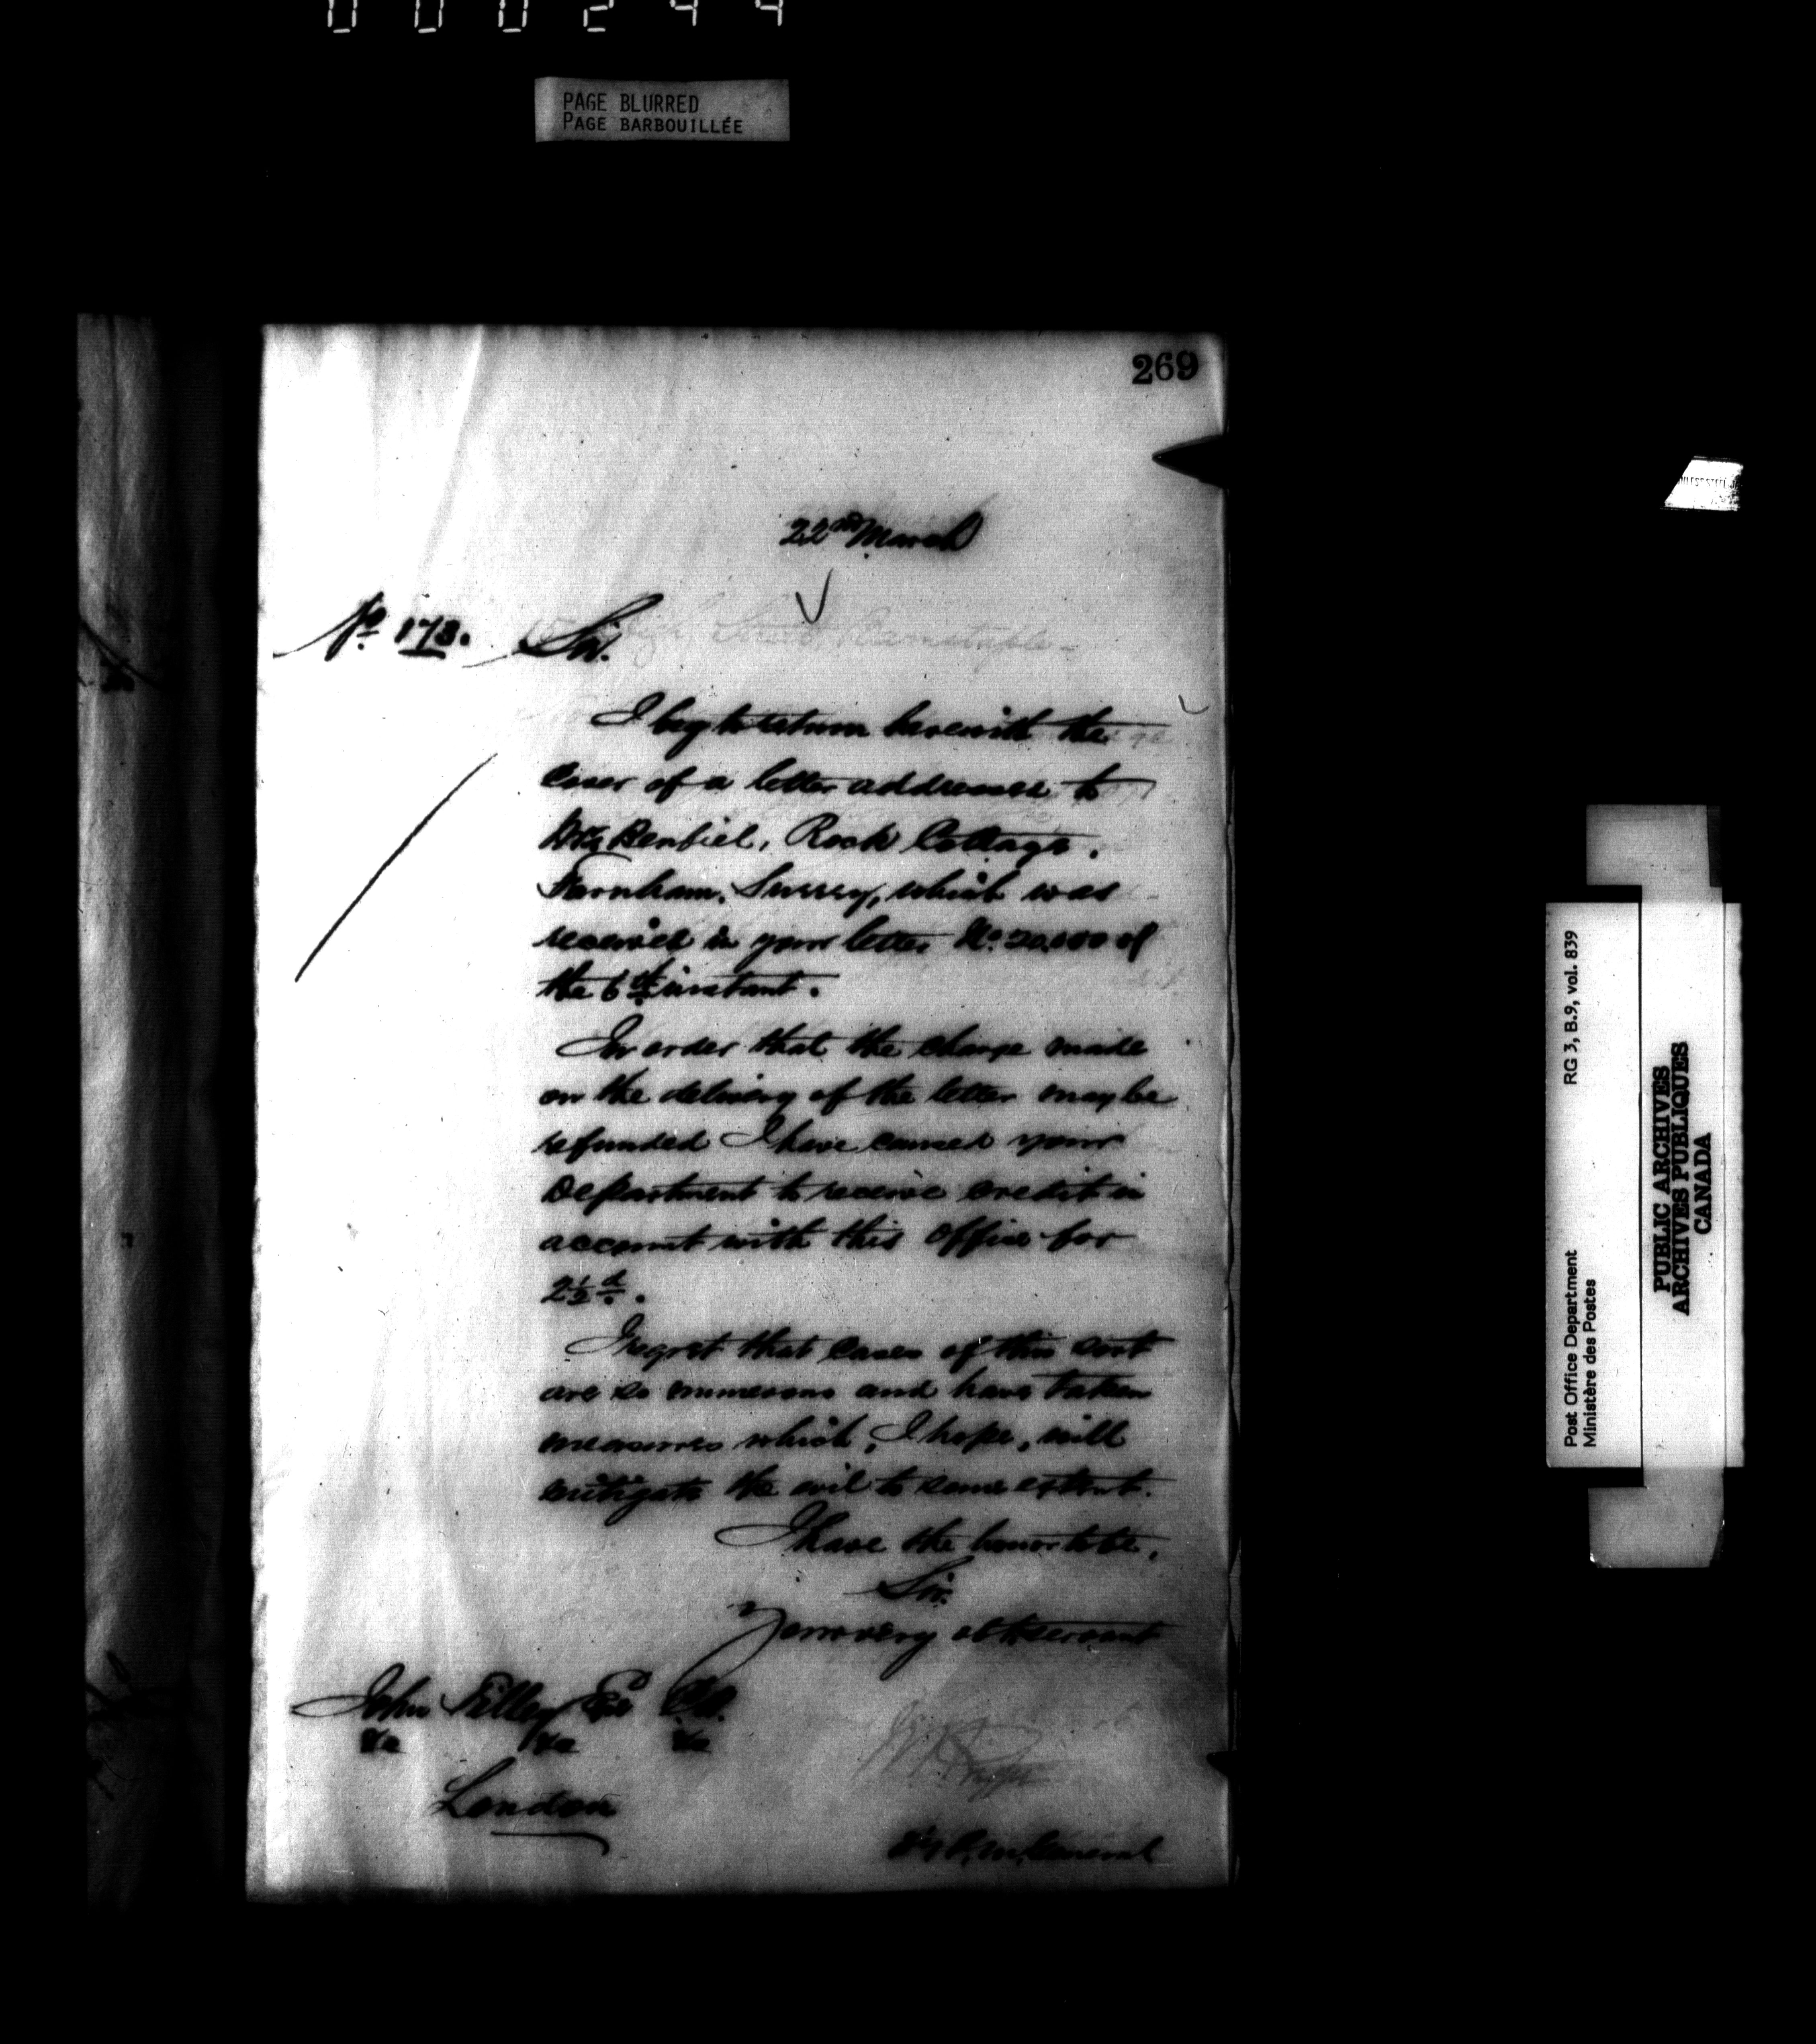 000244
PAGE BLURRED
PAGE BARBOUILLÉE
269
22nd March
No 173. Sir.
I beg to return herewith the
cover of a letter addressed to
Rock Cottage,
Farnham, Surrey, which was
received in your letter No. of
the 6th instant.
In order that the charge made
on the delivery of the letter may be
refunded I have caused your
Department to receive credit in
account with this Office for
2½d.
I regret that cases of this sort
are so numerous and have taken
measures which, I hope, will
mitigate the evil to some extent.
I have the honor to be,
Sir.
Your very obt servant
John Tilley Esq C.B.
&c &c &c
London
Dy P.M. General
RG 3, B.9, vol. 839
Post Office Department
Ministère des Postes
PUBLIC ARCHIVES
ARCHIVES PUBLIQUES
CANADA